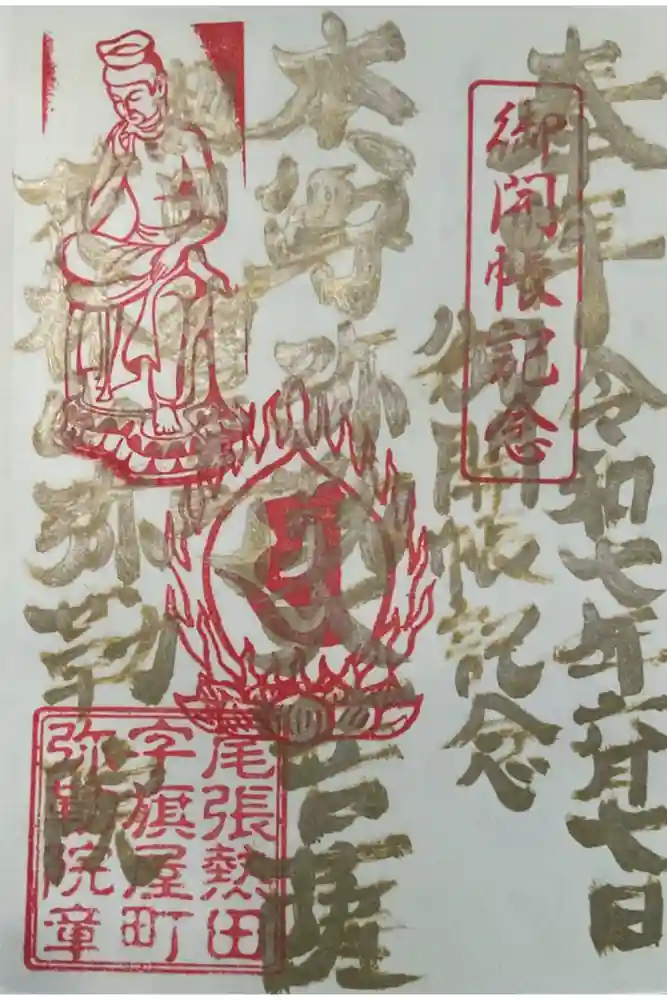 奉拝 令和七年六月七日
御開帳記念
御開帳記念
本尊 弥勒菩薩
弥勒院
尾張熱田
字旗屋町
弥勒院章